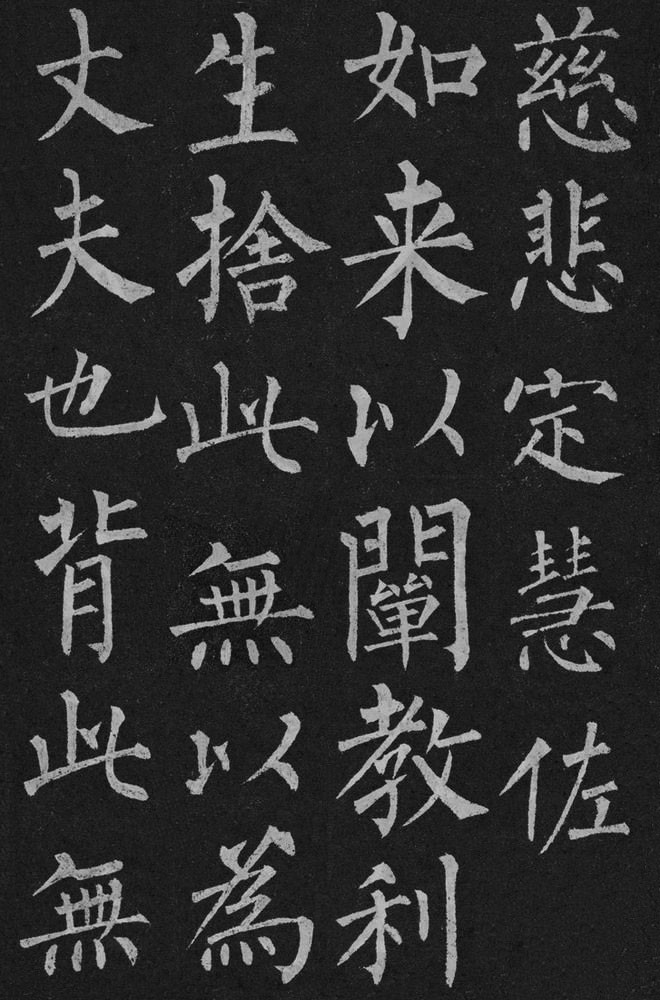 慈悲定慧佐
如来以闡教利
生捨此無以為
丈夫也背此無